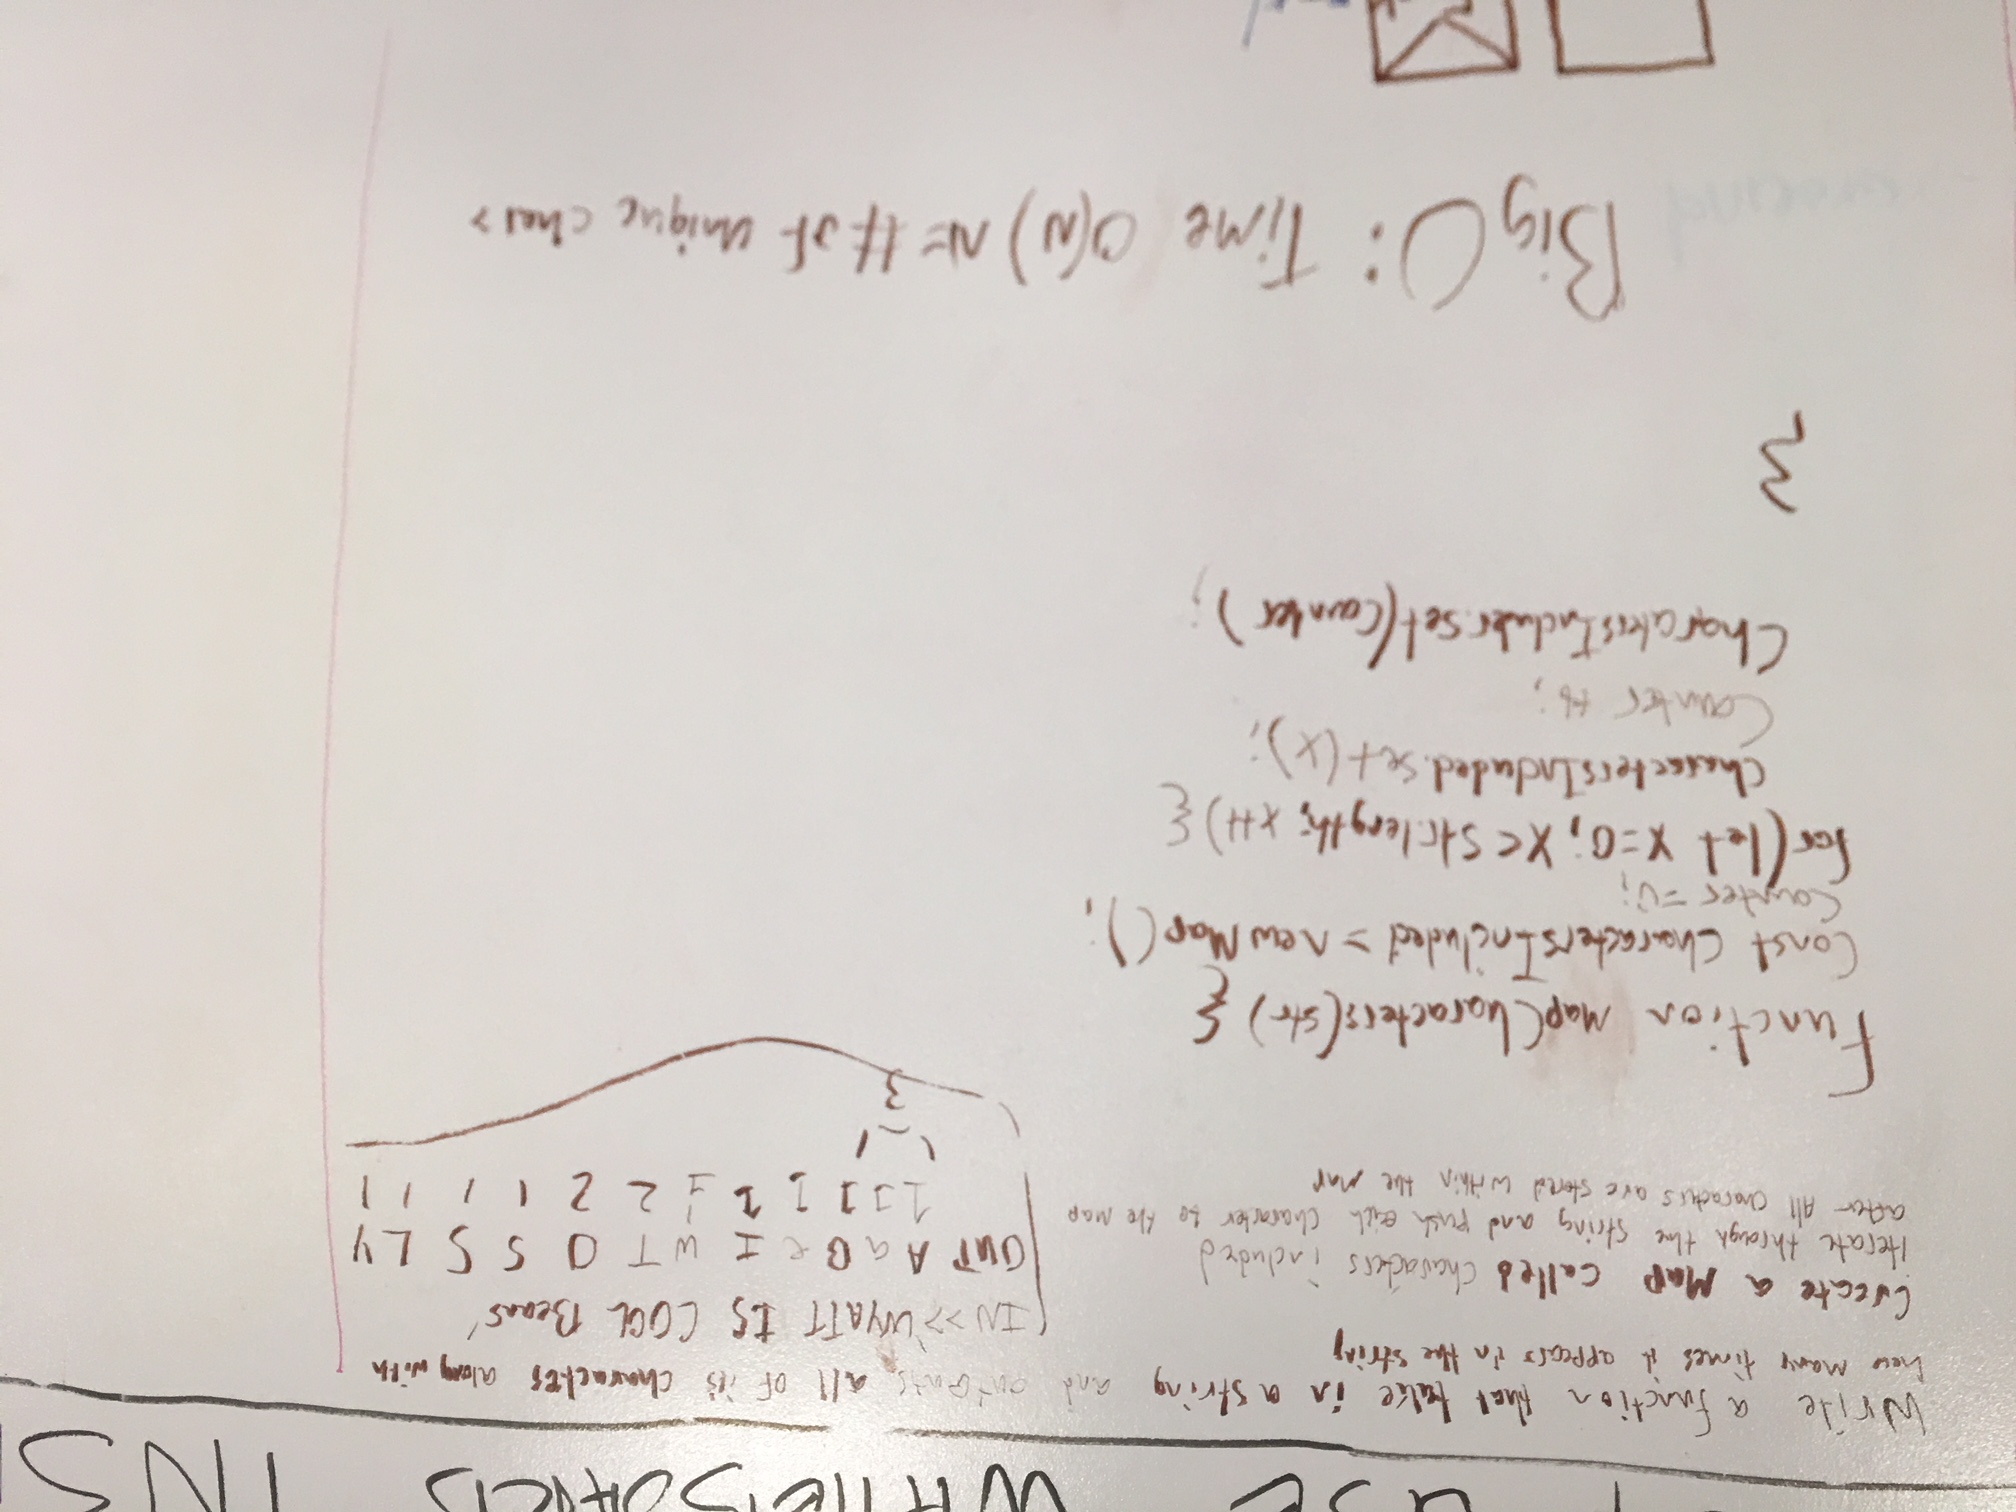 USE WHITEBOARDS INS
Write a function that take in a string and outputs all of its characters along with
how many times it appears in the string
Create a Map called characters included
Iterate through the string and push each character to the map
after All characters are stored within the Map
IN >> 'WYATT IS COOL Beans'
OUT A a B e I W T O S S L Y
1 1 1 1 1 1 2 2 1 1 1 1
3
Function MapCharacters(str) {
Const CharactersIncluded = new Map();
Counter = 0;
for(let x=0; x < str.length; x++) {
CharactersIncluded.set(x);
Counter ++;
CharatersIncluder.set(Counter);
}
Big O: Time O(N) N= # of unique chars